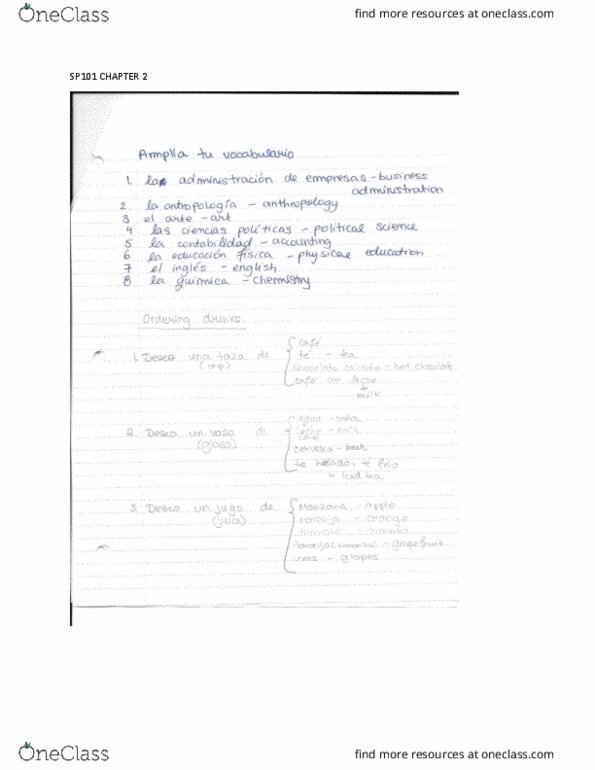 OneClass
find more resources at oneclass.com
SP101 CHAPTER 2
Amplía tu vocabulario
1. la administración de empresas - business
administration
2. la antropología - anthropology
3 el arte - art
4 las ciencias políticas - political science
5 la contabilidad - accounting
6 la educación física - physical education
7 el inglés - english
8 la química - chemistry
Ordering drinks
1. Deseo una taza de
(cup)
café
té - tea
chocolate caliente - hot chocolate
café con leche
milk
2. Deseo un vaso de
(glass)
agua - water
leche - milk
cerveza - beer
té helado, té frío
iced tea
3. Deseo un jugo de
(juice)
Manzana - apple
naranja - orange
tomate - tomato
toronja - grapefruit
uvas - grapes
OneClass
find more resources at oneclass.com